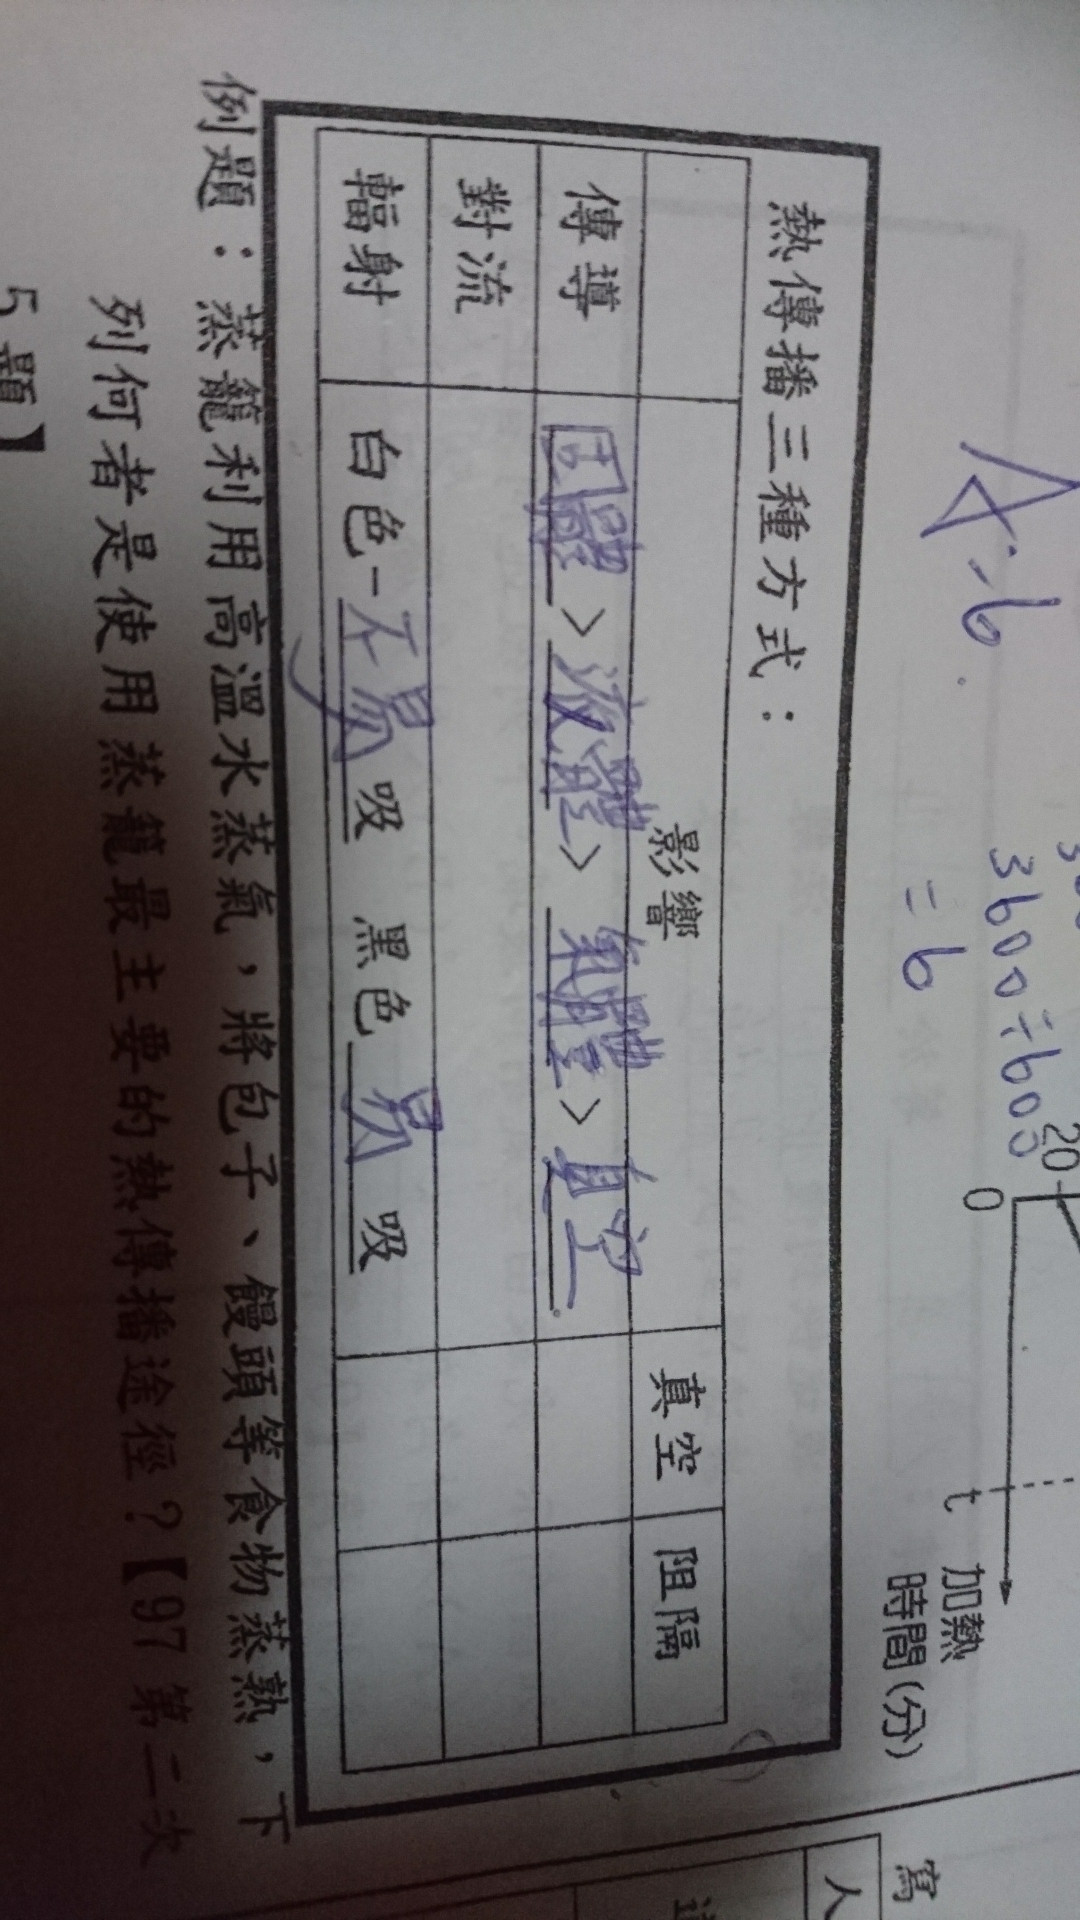 A:6.
3600÷600
=6
20
0
t
加熱
時間(分)
熱傳播三種方式：
影響 真空 阻隔
傳導 固體 > 液體 > 氣體 > 真空.
對流
輻射 白色-不易吸 黑色易吸
例題：蒸籠利用高溫水蒸氣，將包子、饅頭等食物蒸熟，下
列何者是使用蒸籠最主要的熱傳播途徑？【97 第二次
5 題】
寫
人